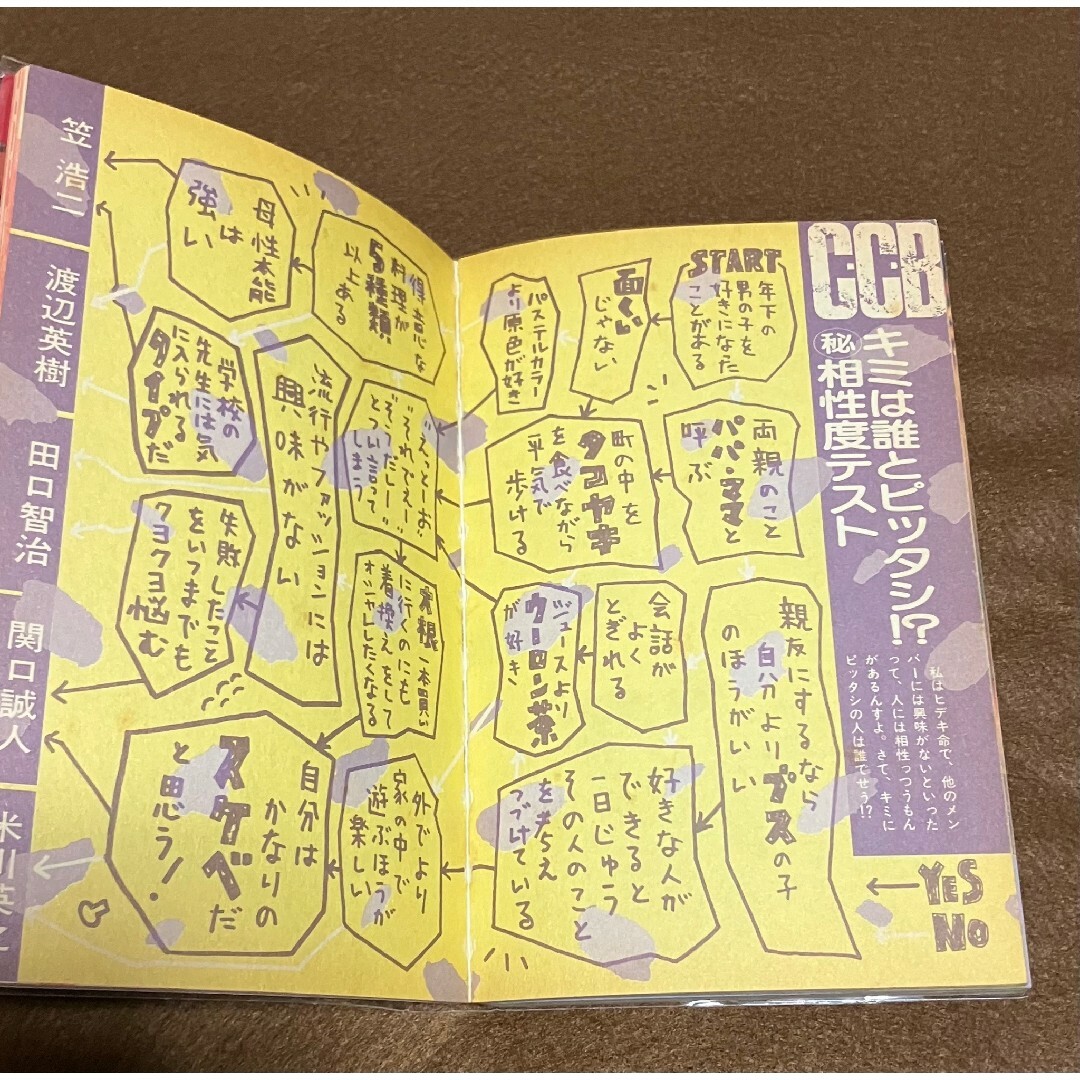 C-C-B
キミは誰とピッタシ!?
㊙相性度テスト
私はヒデキ命で、他のメン
バーには興味がないといった
って、人には相性っつうもん
があるんすよ。さて、キミに
ピッタシの人は誰でせう!?
YES
NO
START
年下の
男の子を
好きになった
ことがある
両親のこと
パパ・ママと
呼ぶ
親友にするなら
自分よりブスの子
のほうがいい
面くい
じゃない
パステルカラー
より原色が好き
町の中を
タコヤキ
を食べながら
平気で
歩ける
会話が
よく
とぎれる
ジュースより
ウーロン茶
が好き
好きな人が
できると
一日じゅう
その人のこと
を考え
つづけている
得意な
料理が
5種類
以上ある
“えっとーお”
“それでえー”
“そうだしー”
とつい言って
しまう
大根一本買い
に行くのにも
着換えをして
オシャレしたくなる
外でより
家の中で
遊ぶほうが
楽しい
母性本能
は
強い
流行やファッションには
興味がない
学校の
先生には気
に入られる
タイプだ
失敗したこと
をいつまでも
クヨクヨ悩む
自分は
かなりの
スケベだ
と思う!
笠浩二
渡辺英樹
田口智治
関口誠人
米川英之